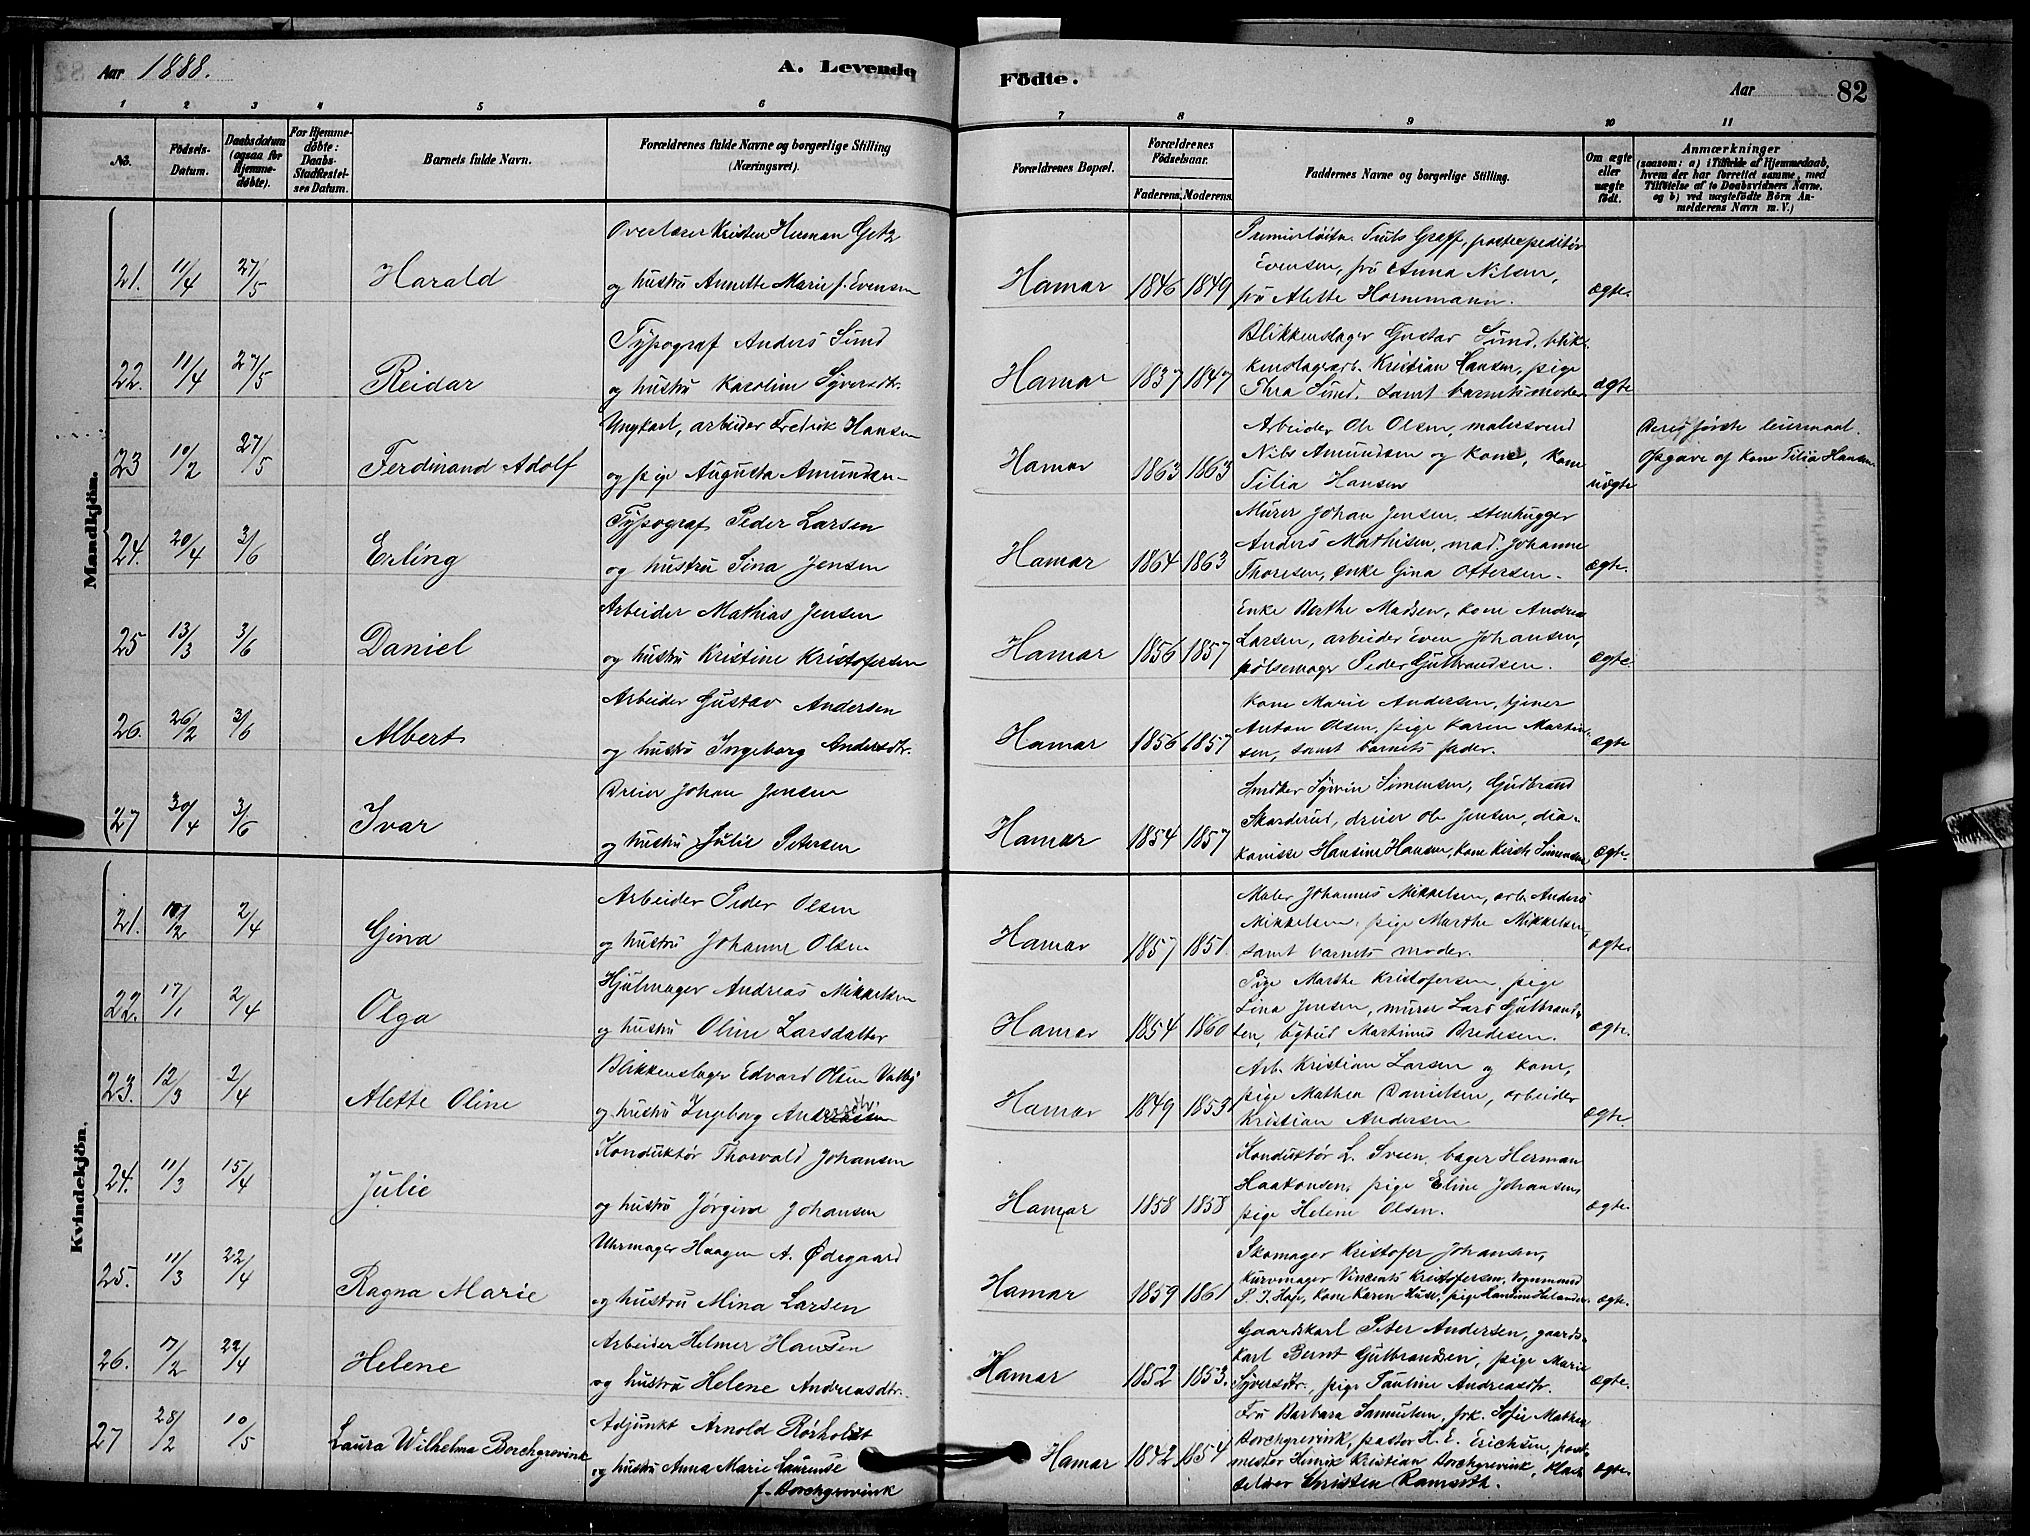 Aar 1888. A. Levende Födte. Aar 82
1 2 3 4 5 6 7 8 9 10 11
No. Födsels-Datum. Daabsdatum (ogsaa for Hjemmedøbte). For Hjemmedøbte: Daabs-Stadfæstelses Datum. Barnets fulde Navn. Forældrenes fulde Navne og borgerlige Stilling (Næringsvei). Forældrenes Bopæl. Forældrenes Födselsaar. Faderens. Moderens. Faddernes Navne og borgerlige Stilling. Om ægte eller uægte födt. Anmærkninger (saasom: a) i Tilfælde af Hjemmedaab, hvem der har forrettet samme, med Tilföielse af to Daabsvidners Navne, og b) ved uægtefödte Börn Anmelderens Navn m. V.)
Mandkjön.
Overlærer Kristen Herman Getz
21. 11/4 27/5 Harald og hustru Annette Marie f. Evensen
Hamar 1846 1849 Premierløitn. Truls Graff, postexpeditör
Evensen, frü Anna Nilsen,
frü Alette Hornemann. ægte.
Typograf Anders Sund
22. 11/4 27/5 Reidar og hustru Karoline Syversdtr.
Hamar 1837 1847 Blikkenslager Gustav Sund, blik-
kenslagerarb. Kristian Hansen, pige
Thea Sund, samt barnets moder ægte
Ungkarl, arbeider Fredrik Hansen
23 10/2 27/5 Ferdinand Adolf og pige Augusta Amundsen
Hamar 1863 1863 Arbeider Ole Olsen, malersvend
Nils Amundsen og kone, kone
Tilia Hansen uægte
Deres første leiermaal.
Opgave af kone Tilia Hansen
Typograf Peder Larsen
24. 20/4 3/6 Erling og hustru Sina Jensen
Hamar 1864 1863 Murer Johan Jensen, stenhugger
Anders Mathisen, mad. Johanne
Thoresen, enke Gina Ottersen. ægte.
Arbeider Mathias Jensen
25 13/3 3/6 Daniel og hustru Kristine Kristofersen
Hamar 1856 1857 Enke Berthe Madsen, kone Andrea
Larsen, arbeider Even Johansen,
pølsemager Peder Gulbrandsen. ægte.
Arbeider Gustav Andersen
26. 26/2 3/6 Albert og hustru Ingeborg Andersdtr.
Hamar 1856 1857 Kone Marie Andersen, tjener
Anton Olsen, pige Karen Martin-
sen, samt barnets fader. ægte
Dreier Johan Jensen
27 30/4 3/6 Ivar og hustru Julie Petersen
Hamar 1854 1857 Snedker Syver Simensen, Gudbrand
Skarderud, dreier Ole Jensen, dia-
konisse Hansine Hansen, kone Kirsti Simensen ægte.
Kvindekjön.
Arbeider Peder Olsen
21. 10/2 2/4 Gina og hustru Johanne Olsen
Hamar 1857 1851. Maler Johannes Mikkelsen, arb. Anders
Mikkelsen, pige Marthe Mikkelsen,
samt barnets moder. ægte.
Hjulmager Andreas Mikkelsen
22. 17/1 2/4 Olga og hustru Oline Larsdatter
Hamar 1854 1860 Pige Marthe Kristofersen, pige
Lina Jensen, murer Lars Gulbrand-
sen, bybud Martinus Bredesen. ægte.
Blikkenslager Edvard Olsen Valby
23. 12/3 2/4 Alette Oline og hustru Ingeborg Andersdtr.
Hamar 1849 1853 Arb. Kristian Larsen og kone,
pige Mathea Danielsen, arbeider
Kristian Andersen ægte.
Konduktør Thorvald Johansen
24. 11/3 15/4 Julie og hustru Jørgine Johansen
Hamar 1858 1858 Konduktör L. Sveen, bager Herman
Haakonsen, pige Eline Johansen,
pige Helene Olsen. ægte.
Uhrmager Haagen A. Ødegaard
25. 11/3 22/4 Ragna Marie og hustru Mina Larsen
Hamar 1859 1861 Skomager Kristofer Johansen,
Kurvmager Vincents Kristofersen, Vognmand
P. J. Hoje, kone Karen Huse, pige Karoline Helander ægte.
Arbeider Helmer Hansen
26. 17/2 22/4 Helene og hustru Helene Andreasdtr.
Hamar 1852 1853. Gaardskarl Peter Andersen, gaards-
karl Bernt Gulbrandsen, pige Marie
Syversdtr., pige Pauline Andreasdtr. ægte.
Adjunkt Arnold Rørholdt
27 28/2 10/5 Laura Wilhelma Borchgrevink og hustru Anna Marie Laurense
f. Borchgrevink
Hamar 1842 1854 Fru Barbara Samuelsen, frk. Sofie Mathea
Borchgrevink, pastor H. E. Erichsen, post-
mester Henrik Kristian Borchgrevink,
Christen Ramseth. ægte.